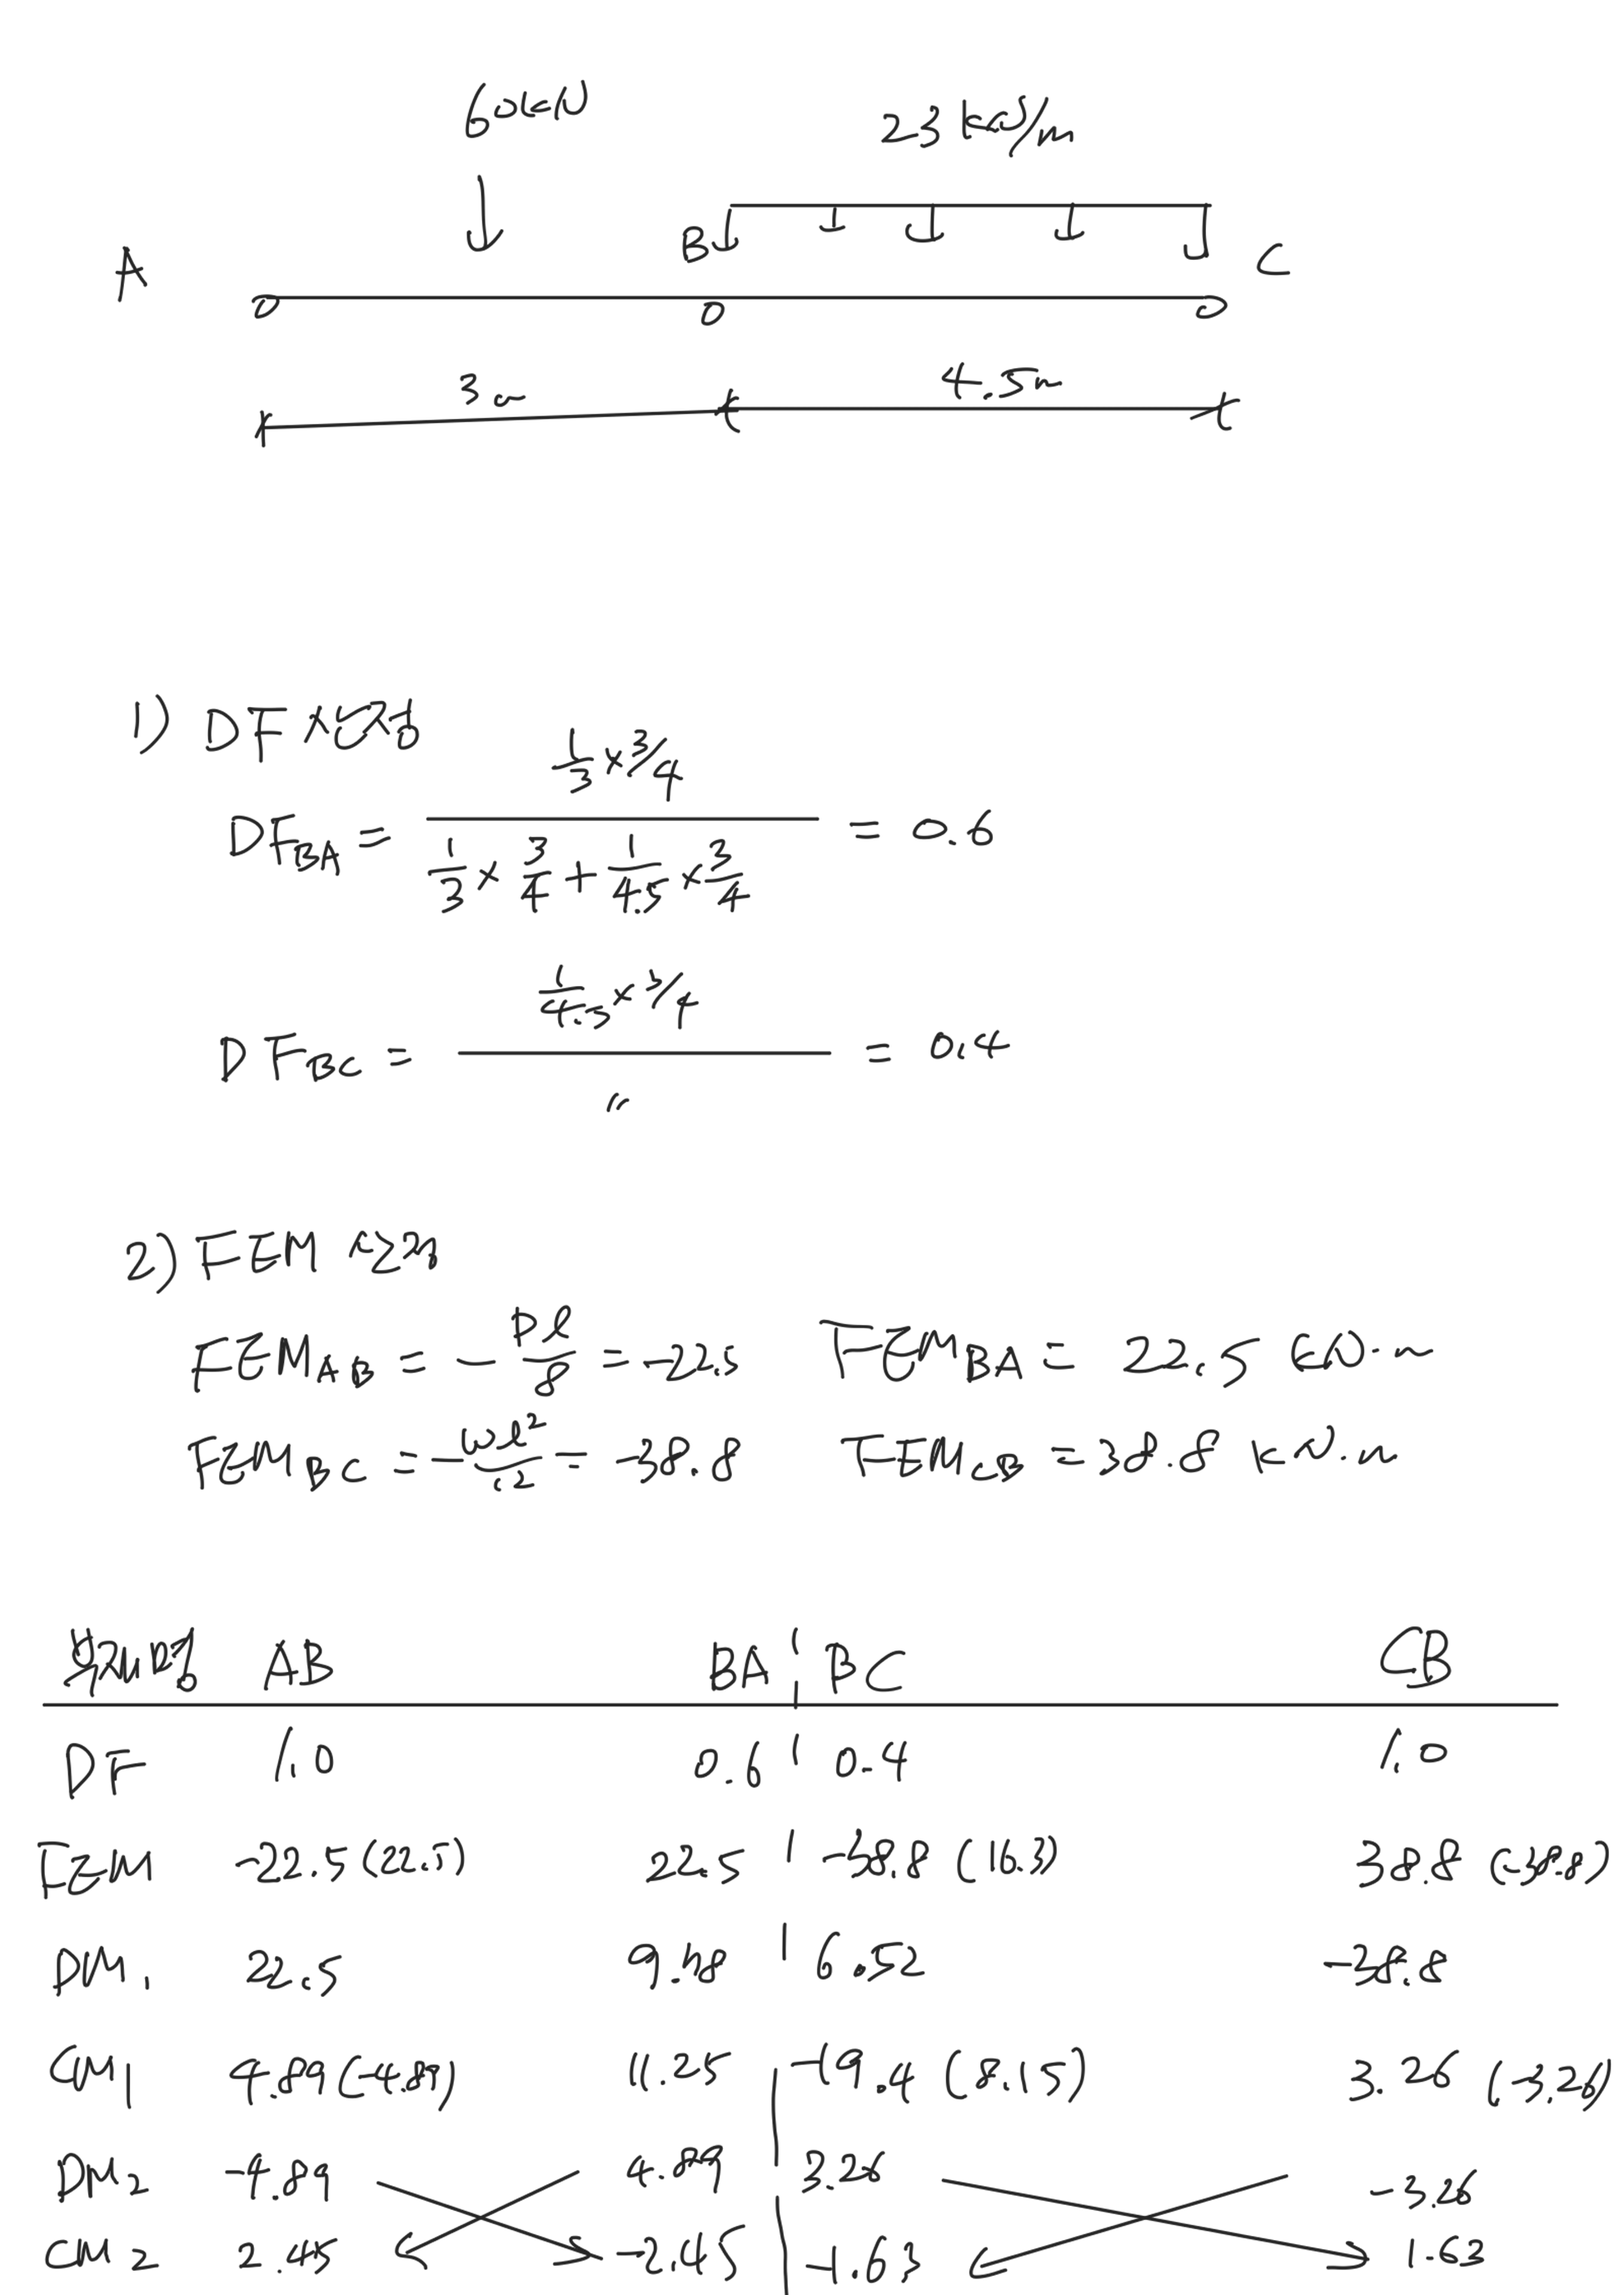 60kN
23 kN/m
A B C
3m 4.5m
1) DF 산정
DF_BA = (1/3 × 3/4) / (1/3 × 3/4 + 1/4.5 × 3/4) = 0.6
DF_BC = (1/4.5 × 3/4) / 〃 = 0.4
2) FEM 산정
FEM_AB = - Pl/8 = -22.5 FEM_BA = 22.5 kN·m
FEM_BC = - ωl²/12 = -38.8 FEM_CB = 38.8 kN·m
AB BA BC CB
DF 1.0 0.6 0.4 1.0
FEM -22.5 (22.5) 22.5 -38.8 (16.3) 38.8 (-38.8)
DM1 22.5 9.78 6.52 -38.8
CM1 4.89 (-4.89) 11.25 -19.4 (8.15) 3.26 (-3.26)
DM2 -4.89 4.89 3.26 -3.26
CM2 2.45 -2.45 -1.63 1.63